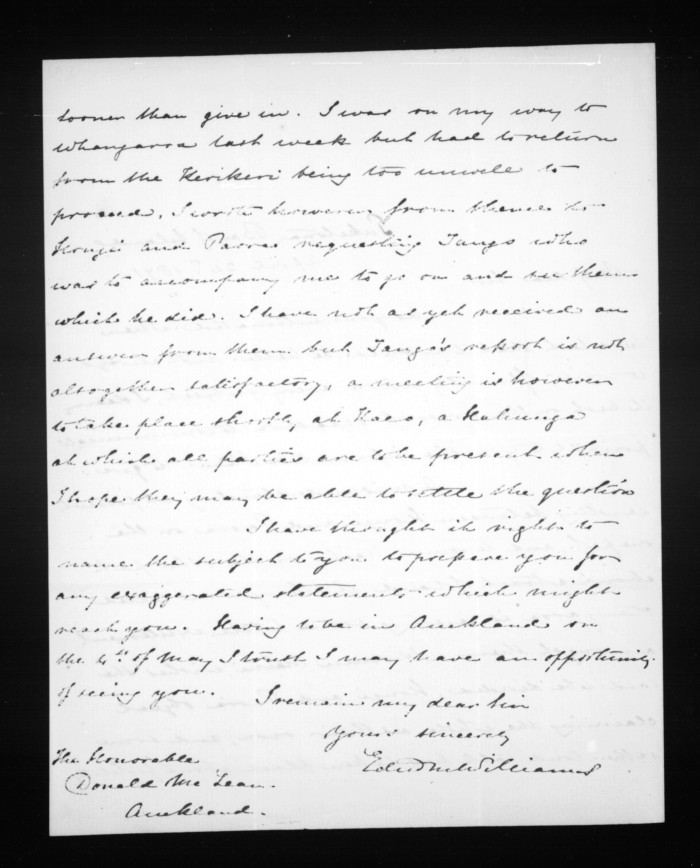 sooner than give in. I was on my way to
Whangaroa last week but had to return
from the Kerikeri being too unwell to
proceed. I wrote however from thence to
Hongi and Paora requesting Tango who
was to accompany me to go on and see them
which he did. I have not as yet received an
answer from them but Tango's report is not
altogether satisfactory, a meeting is however
to take place shortly, at Kaeo, a Hahunga
at which all parties are to be present when
I hope they may be able to settle the question
I have thought it right to
name the subject to you to prepare you for
any exaggerated statements which might
reach you. Having to be in Auckland on
the 4th of May I trust I may have an opportunity
of seeing you.
I remain my dear Sir
Yours sincerely
Edw M Williams
The Honorable
Donald McLean.
Auckland.